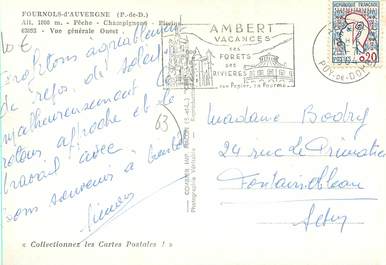 FOURNOLS-D'AUVERGNE (P.-de-D.)
Alt. 1000 m. - Pêche - Champignons -
63252 - Vue générale Ouest.
10 €
Profitons agréablement
de repos, du soleil
malheureusement le
retour approche et le
travail avec.
bon souvenir à
Simone
63
« Collectionnez les Cartes Postales ! »
COMBIER IMP. MACON
Photographie Véritable
AMBERT
VACANCES
SES
FORETS
SES
RIVIERES
son Papier, sa Fourme
PUY-DE-DOME
REPUBLIQUE FRANÇAISE
POSTES
0,20
Madame Bodry
24 rue de Primatice
Fontainebleau